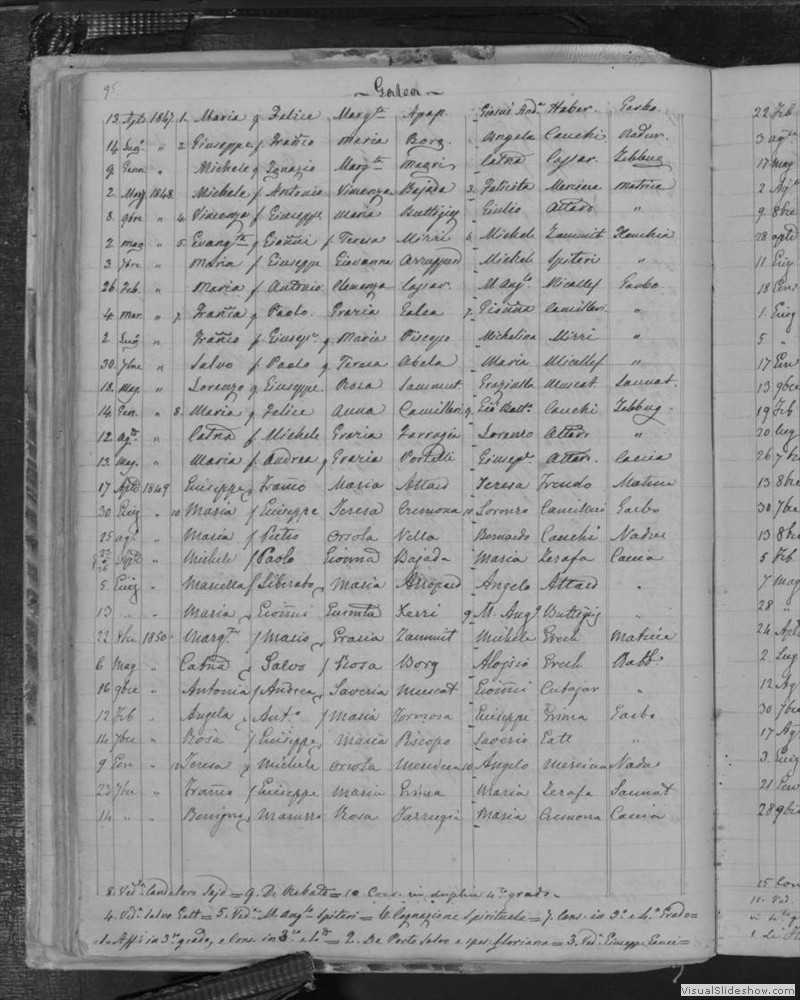 95
~ Galea ~
13 Aple 1847 1. Maria q Felice Margta Apap. Giosuè And. Haber. Garbo.
14 Lug. " 2 Giuseppe f Franco Maria Borg. Angela Cauchi Nadur.
9 Genn. " Michele q Ignazio Margta Magri Catna Cassar. Zebbug
2. Mag 1848 Michele f Antonio Vincenza Bajada 3. Felicita Matrice
8. 9bre " 4. Vincenza f Giuseppe Maria Buttigieg Giulio Attard "
2 mag " 5. Evangta q Gioñni f Teresa Mizzi 6. Michele Zammit Xeuchia
3. 7bre " Maria f Giuseppe Giovanna Michel Spiteri "
26 Feb. " Maria f Antonio Vincenza Cassar. M Angla Micallef Garbo.
4 Mar. " 7. Franca q Paolo. Grazia Galea 7. Gioñna Camilleri "
2 Lug " Franco f Giusepe q Maria Piscopo Michelina Mizzi "
30. 7bre " Salvo f Paolo q Teresa Abela Maria Micallef "
18. Mag. " Lorenzo q Giuseppe. Rosa Sammut Graziulla Muscat Sannat.
14 Gen. " 8. Maria q Felice Anna Camilleri 9. Gio Batta. Cauchi Zebbug.
12 agto " Catna f Michele Grazia Farrugia Lorenzo Attard "
13. mag. " Maria f Andrea q Grazia Portelli Giusepe Attard. Caccia
17 Aple 1849 Giuseppe q Franco Maria Attard Teresa Frendo Matrice
30 Giug " 10 Maria f Giuseppe Teresa Cremona 10 Lorenzo Camilleri Garbo
25 agto " Maria f Pietro Orsola Vella Bernardo Cauchi Nadur
Aple " Michele f Paolo Gioñna Bajada Maria Zerafa Caccia
5 Giug " Marcella f Liberato q Maria Angelo Attard "
13 " " Maria q Gioñni Giuntta Xerri 9 M Angla Buttigieg "
22 8bre 1850 Margta f Mario q Grazia Zammit Michele Grech Matrice
6 Mag " Catna q Salvo f Rosa Borg Aloisio Grech Rabt
16 9bre " Antonia f Andrea q Saveria Muscat Gioñni Cutajar "
12 Feb " Angela q Anto f Maria Formosa Giuseppe Grima Garbo
14 7bre " Rosa f Giuseppe q Maria Piscopo Saverio Gatt "
9 Gen " Teresa q Michele Orsola 10 Angelo Nadur
23 7bre " Franco f Giuseppe Maria Grima Maria Zerafa Sannat
14 " " Benigna q Marcello Rosa Farrugia Maria Cremona Caccia
8. Vedo Sajd = 9. Di Rabato = 10 Cons. in duplici 4o grado
4. Vedo Salvo Gatt = 5. Vedo M. Angla Spiteri = 6. Cognazione Spirituale = 7. Cons. in 3o e 4o Grado =
1. Affà in 3o grado, e Cons. in 3o e 4o = 2. De Porto Salvo e spes. floriana = 3. Vedo Giuseppe Cauci =
22 Feb
3 agto
17 mag
2 Agto
9 8bre
28 aple
11 Giug
18 Gen
1. Giug
5 "
17 Gen
13 9bre
19 Feb
20 lug
26 7bre
13 8bre
30 7bre
13 8bre
5 Feb
7 mag
28 "
24 Aple
2 Lug
12 Ag
30 7bre
17 Ag
3 Giug
21 Gen
28 9bre
15 Con
11. Ved.
VisualSlideshow.com